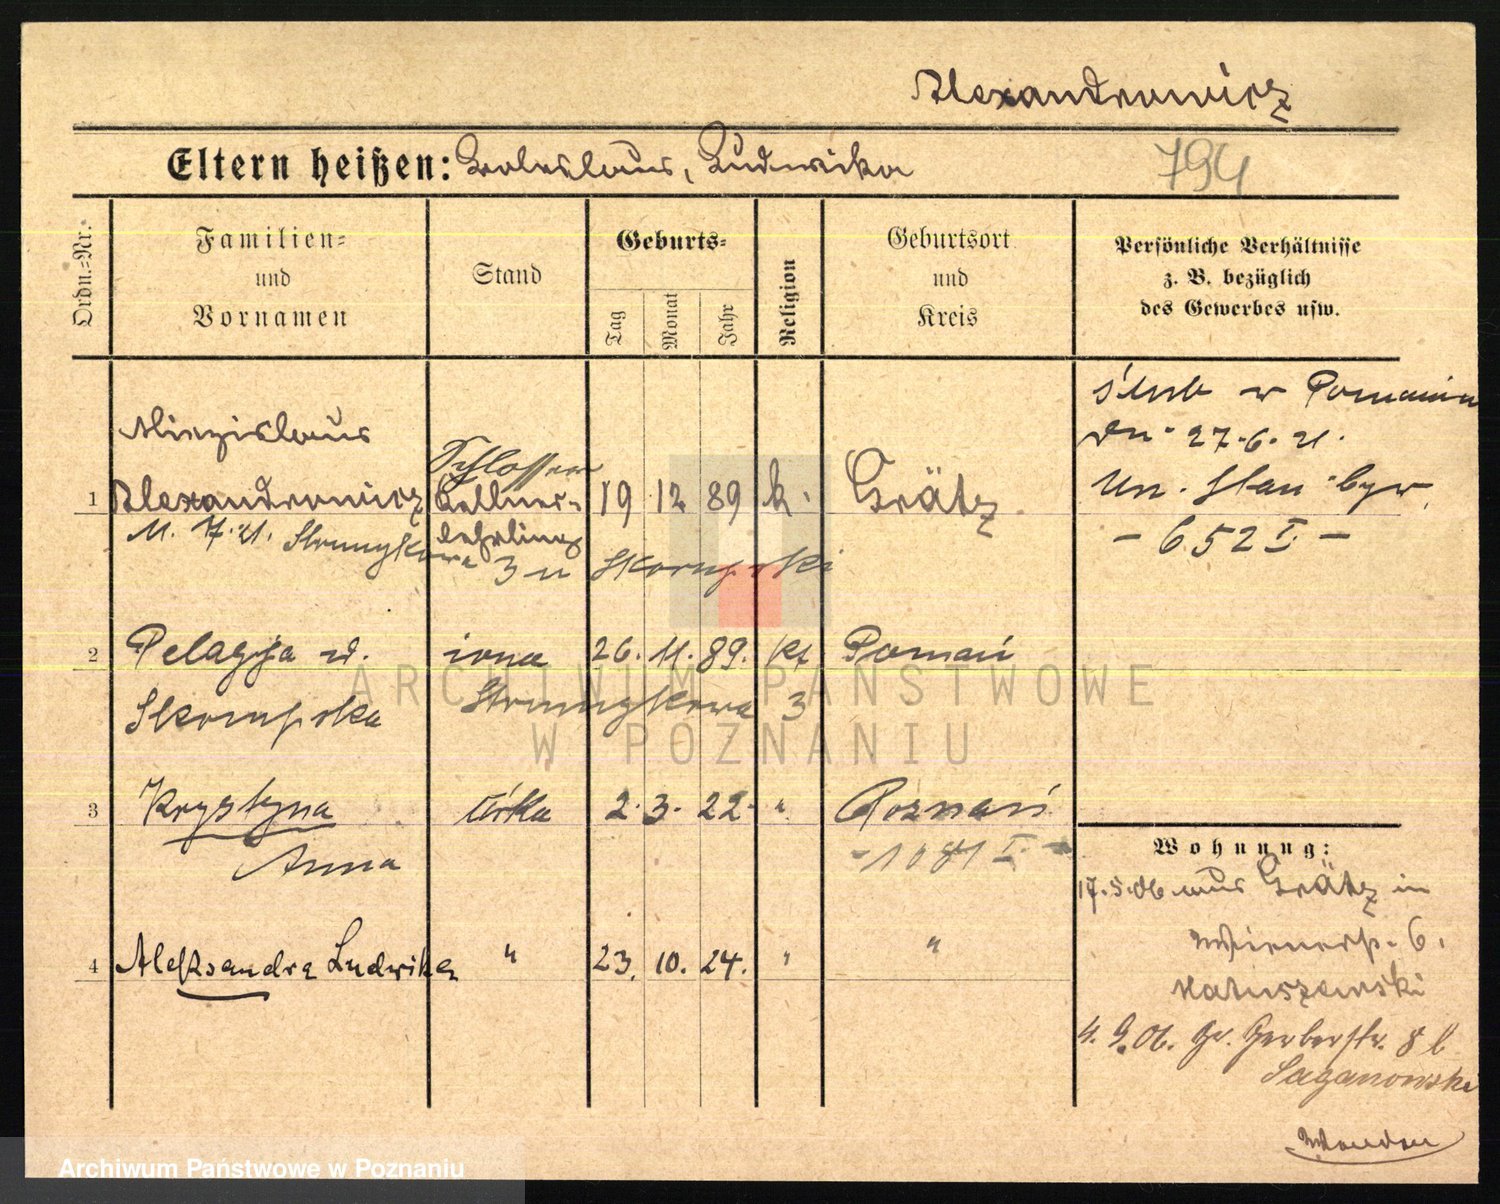 Alexandrowicz
Eltern heißen: Boleslaus, Ludwika
794
Ordn.=Nr.
Familien=
und
Vornamen
Stand
Geburts=
Tag
Monat
Jahr
Religion
Geburtsort
und
Kreis
Persönliche Verhältnisse
z. B. bezüglich
des Gewerbes usw.
Miezislaus
1 Alexandrowicz
Schlosser
Kellner-
lehrling
19 12 89 k.
Grätz
11. 7. 21. Strumykowa 3 u Skorupski
ślub w Poznaniu
dn. 27.6.21.
Un. Stan. cyw.
- 652 I -
2 Pelagja z d. żona 26. 11. 89. kt Poznań
Skorupska Strumykowa 3
3 Krystyna córka 2. 3. 22. " Poznań
Anna
- 1081 I -
4 Aleksandra Ludwika " 23. 10. 24. " "
Wohnung:
17.5.06 aus Grätz in
Wienerstr. 6.
Matuszewski
4. 9. 06. Gr. Gerberstr. 8 b
Saganowski
ARCHIWUM PAŃSTWOWE
W POZNANIU
Archiwum Państwowe w Poznaniu